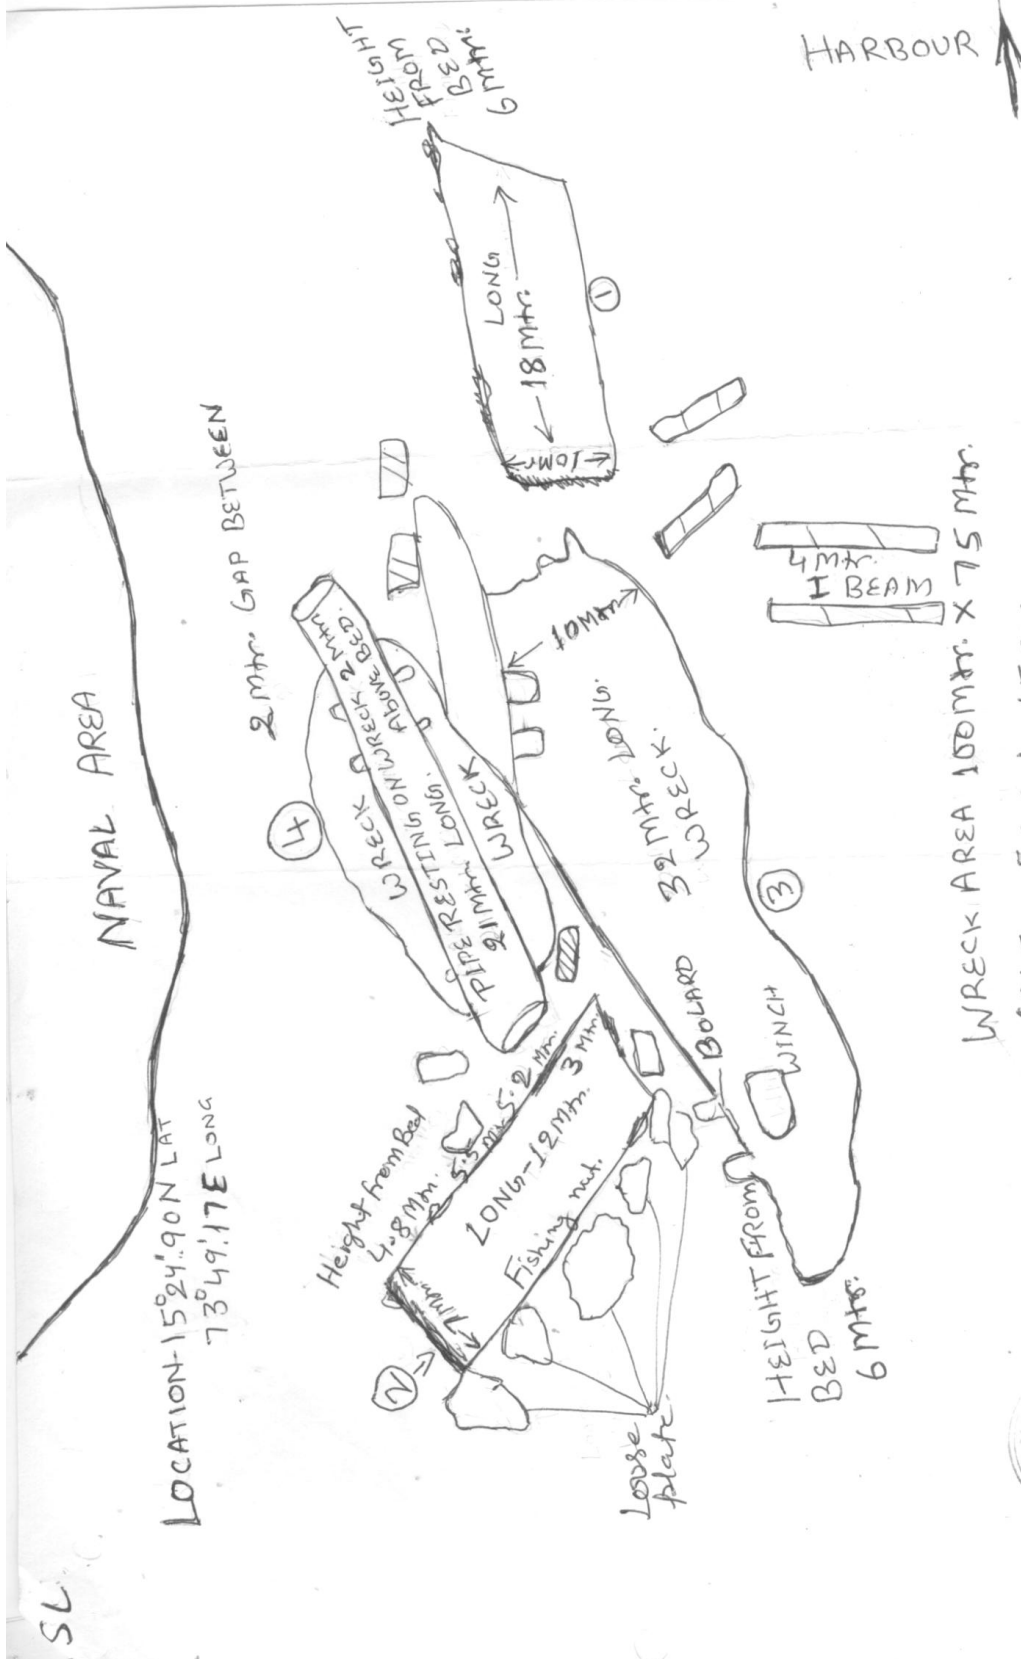 SL
LOCATION-15°24'.90N LAT
73°49'.17E LONG
NAVAL AREA
2 Mtr. GAP BETWEEN
HARBOUR
HEIGHT
FROM
BED
6 Mtr.
LONG
18 Mtr.
10Mr
1
4
WRECK
PIPE RESTING ON WRECK 2 Mtr
ABOVE BED.
21 Mtr. LONG.
WRECK
10Mtr
32 Mtr. LONG.
WRECK.
3
BOLARD
WINCH
Height from Bed
4.8 Mtr. 5.5 Mtr 5.2 Mtr.
3 Mtr.
LONG-12 Mtr.
Fishing nut.
7 Mtr
2
Loose
plate.
HEIGHT FROM
BED
6 Mtr.
4 Mtr.
I BEAM
WRECK AREA 100Mtr. X 75 Mtr.